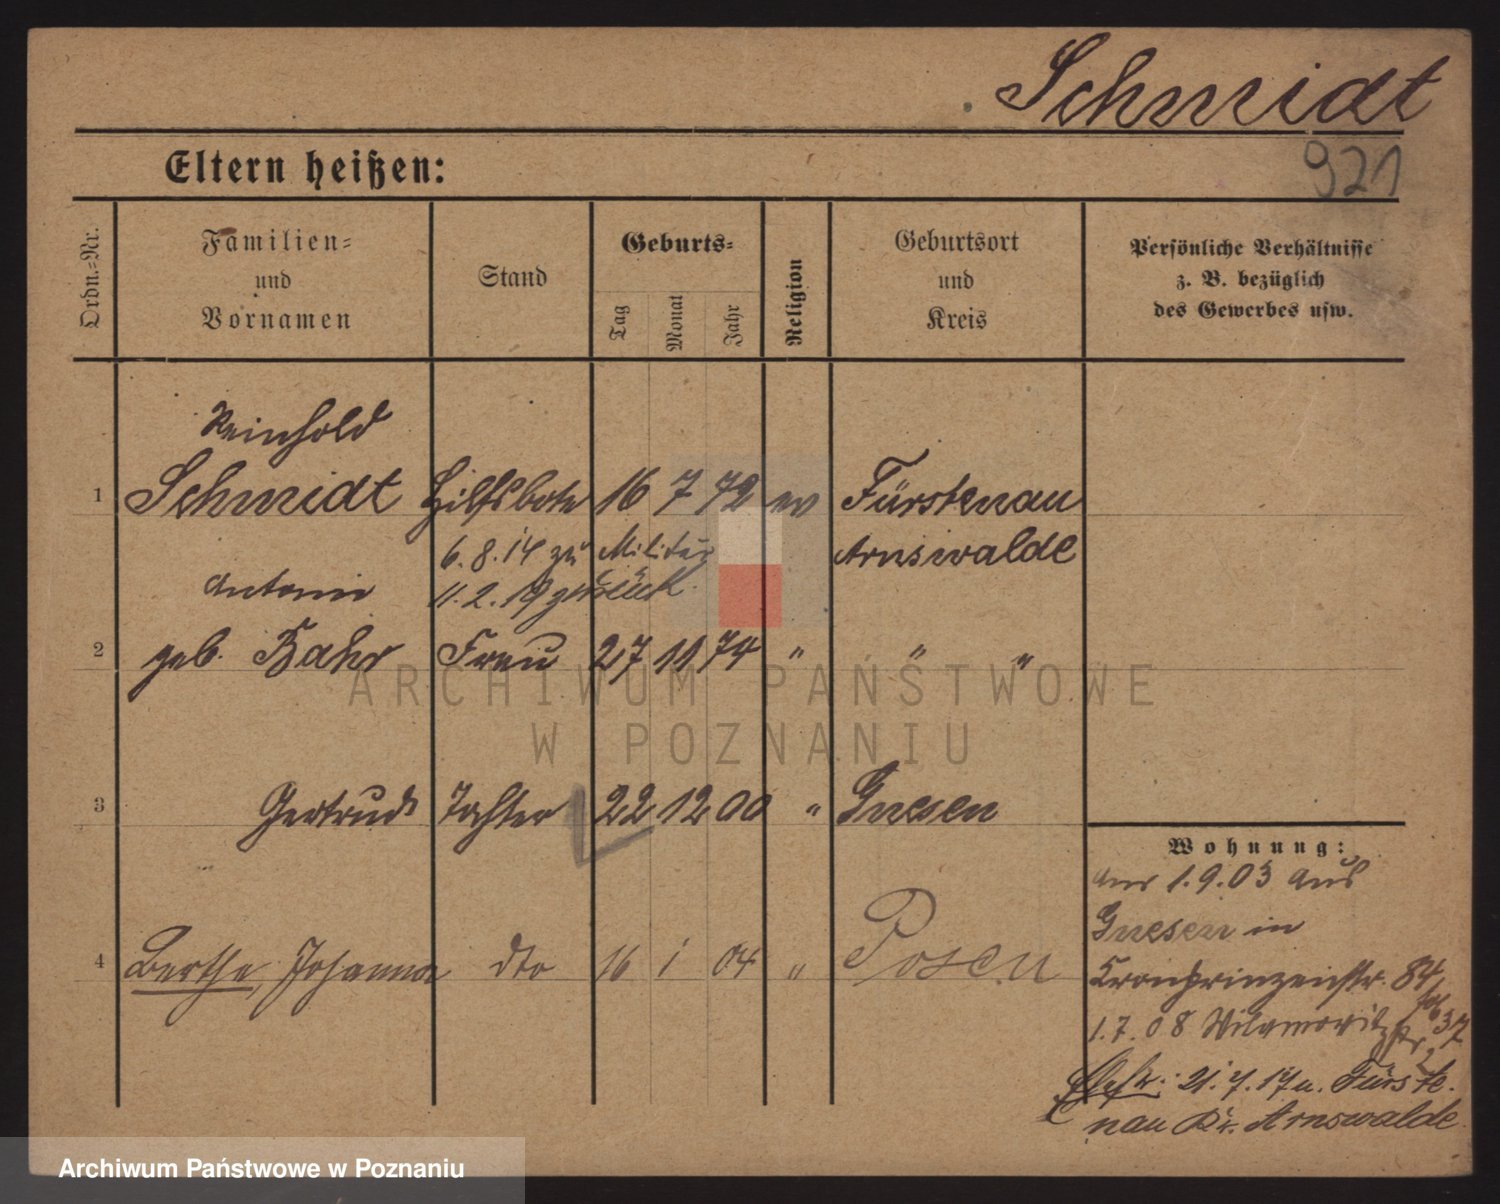 Schmidt
921
Eltern heißen:
Ordn.=Nr.
Familien=
und
Vornamen
Stand
Geburts=
Tag
Monat
Jahr
Religion
Geburtsort
und
Kreis
Persönliche Verhältnisse
z. B. bezüglich
des Gewerbes usw.
Reinhold
1 Schmidt Hilfsbote 16 7 72 ev Fürstenau
6.8.14 zu Militär Arnswalde
Antonie 11.2.19 zurück.
2 geb. Bahr Frau 27 11 74 " " "
3 Gertrude Tochter 22 12 00 " Gnesen
4 Berthe, Johanna dto 16 1 04 " Posen
Wohnung:
am 1.9.03 aus
Gnesen in
Kronprinzenstr. 84
1.7.08 Wilamowitzstr 2
37
21.7.17 n. Fürste.
nau Kr. Arnswalde
ARCHIWUM PAŃSTWOWE
W POZNANIU
Archiwum Państwowe w Poznaniu